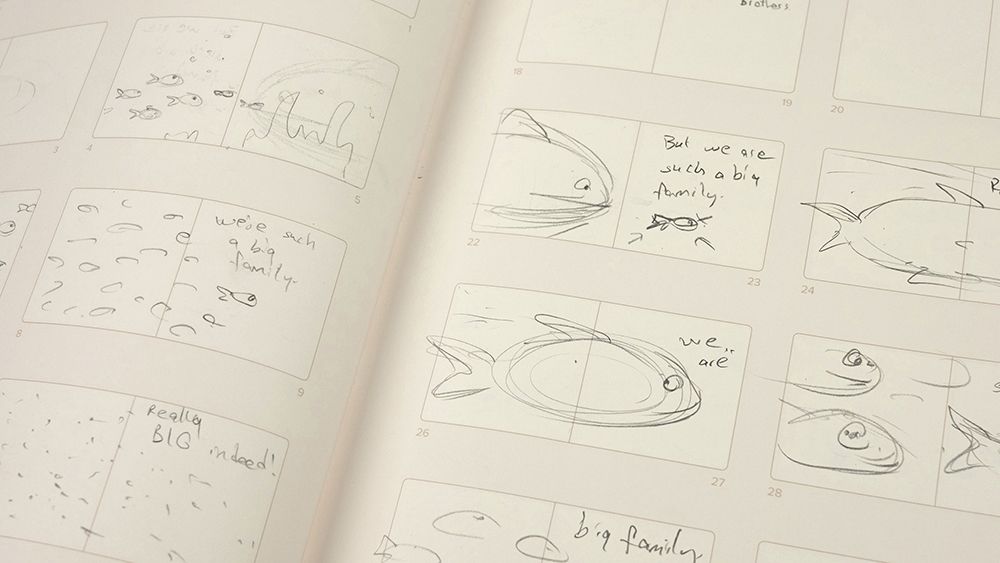 1
4
5
we're such
a big
family.
8
9
Really
BIG indeed!
18
19
20
But we are
such a big
family.
22
23
24
we..
are
26
27
28
big family.